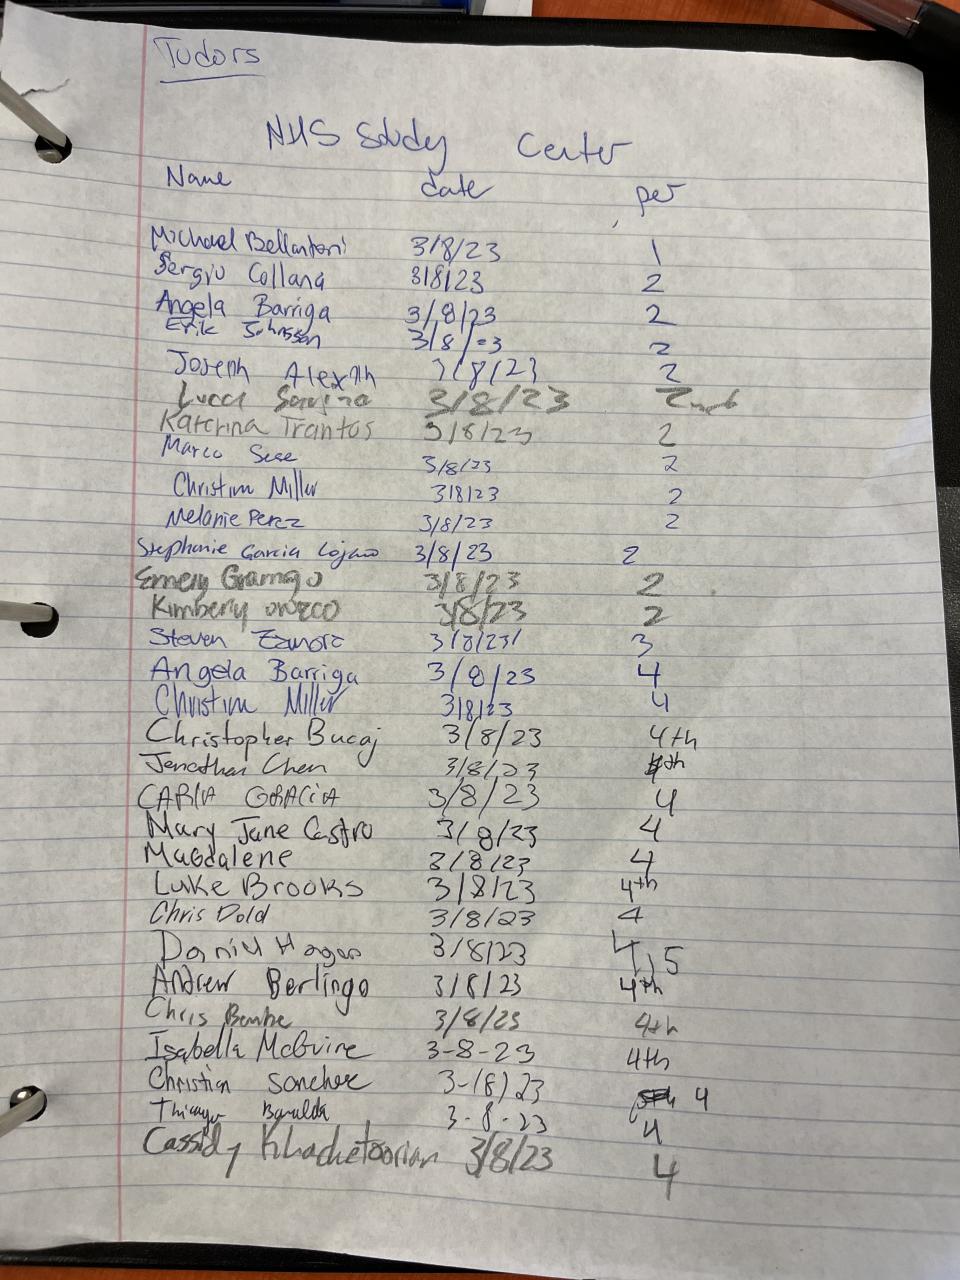 Tudors
NHS Study Center
Name date per
Michael Bellantoni 3/8/23 1
Sergio Collana 3/8/23 2
Angela Barriga 3/8/23 2
Erik Johnson 3/8/23 2
Joseph 3/8/23 2
Lucca 3/8/23
Katerina Trantos 3/8/23 2
Marco Sese 3/8/23 2
Christian Miller 3/8/23 2
Melanie Perez 3/8/23 2
Stephanie Garcia Lojano 3/8/23 2
Emery 3/8/23 2
Kimberly orozco 3/8/23 2
Steven Zamora 3/8/23 3
Angela Barriga 3/8/23 4
Christian Miller 3/8/23 4
Christopher Bucaj 3/8/23 4th
Jonathan Chen 3/8/23 4th
3/8/23 4
Mary Jane Castro 3/8/23 4
Magdalene 3/8/23 4
Luke Brooks 3/8/23 4th
Chris Dold 3/8/23 4
Daniel 3/8/23 4,5
Andrew Berlingo 3/8/23 4th
Chris 3/8/23 4th
Isabella McGuire 3-8-23 4th
Christian Sanchez 3-8/23 4
3-8-23 4
Cassidy Khachetoorian 3/8/23 4